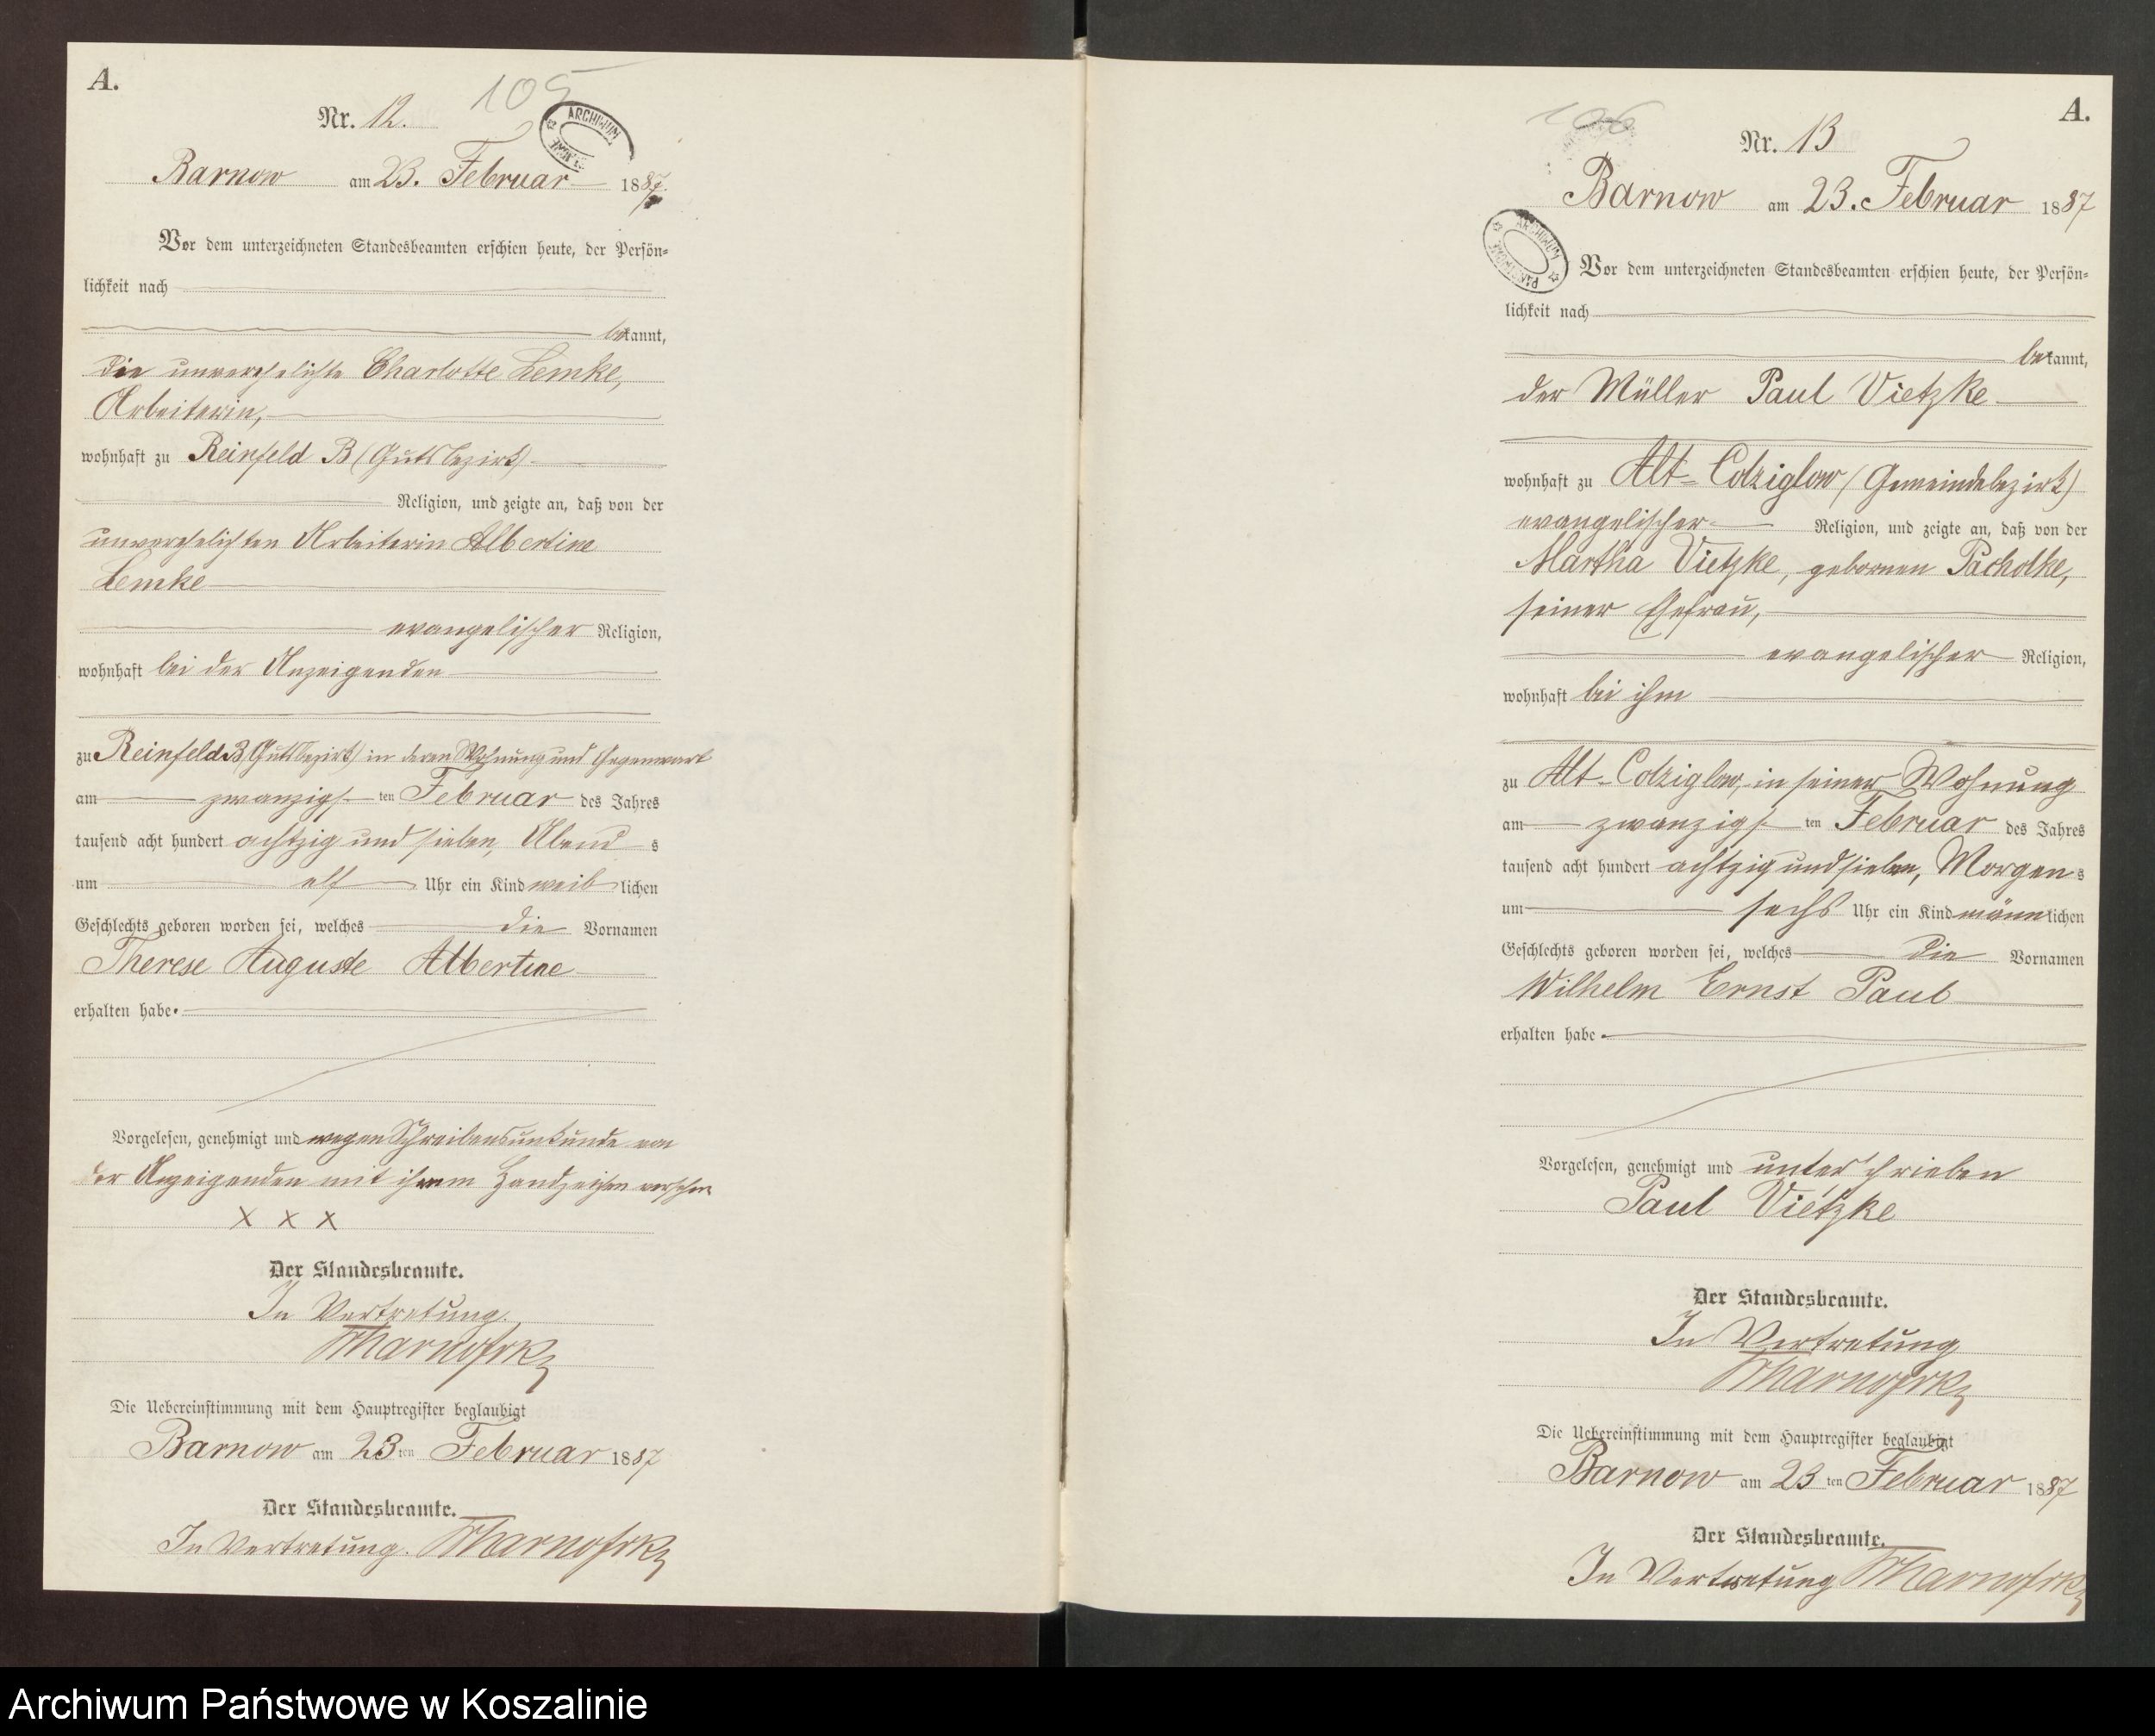 A.
105
Nr. 12.
ARCHIWUM
Barnow am 23. Februar 1887.
Vor dem unterzeichneten Standesbeamten erschien heute, der Persön-
lichkeit nach
bekannt,
die unverehelichte Charlotte Lemke,
Arbeiterin,
wohnhaft zu Reinfeld B (Gutsbezirk)
Religion, und zeigte an, daß von der
unverehelichten Arbeiterin Albertine
Lemke
evangelischer Religion,
wohnhaft bei der Anzeigenden
zu Reinfeld B (Gutsbezirk) in deren Wohnung und Gegenwart
am zwanzigs ten Februar des Jahres
tausend acht hundert achtzig und sieben, Abend s
um elf Uhr ein Kind weib lichen
Geschlechts geboren worden sei, welches die Vornamen
Therese Auguste Albertine
erhalten habe.
Vorgelesen, genehmigt und wegen Schreibensunkunde von
der Anzeigenden mit ihrem Handzeichen versehen
X X X
Der Standesbeamte.
In Vertretung.
Die Uebereinstimmung mit dem Hauptregister beglaubigt
Barnow am 23 ten Februar 1887
Der Standesbeamte.
In Vertretung.
A.
106
Nr. 13
Barnow am 23. Februar 1887
ARCHIWUM
Vor dem unterzeichneten Standesbeamten erschien heute, der Persön-
lichkeit nach
bekannt,
der Müller Paul Vietzke
wohnhaft zu Alt-Colziglow (Gemeindebezirk)
evangelischer Religion, und zeigte an, daß von der
Martha Vietzke, gebornen Pacholke,
seiner Ehefrau,
evangelischer Religion,
wohnhaft bei ihm
zu Alt-Colziglow, in seiner Wohnung
am zwanzigs ten Februar des Jahres
tausend acht hundert achtzig und sieben, Morgen s
um sechs Uhr ein Kind männ lichen
Geschlechts geboren worden sei, welches die Vornamen
Wilhelm Ernst Paul
erhalten habe.
Vorgelesen, genehmigt und unterschrieben
Paul Vietzke
Der Standesbeamte.
In Vertretung
Die Uebereinstimmung mit dem Hauptregister beglaubigt
Barnow am 23 ten Februar 1887
Der Standesbeamte.
In Vertretung
Archiwum Państwowe w Koszalinie